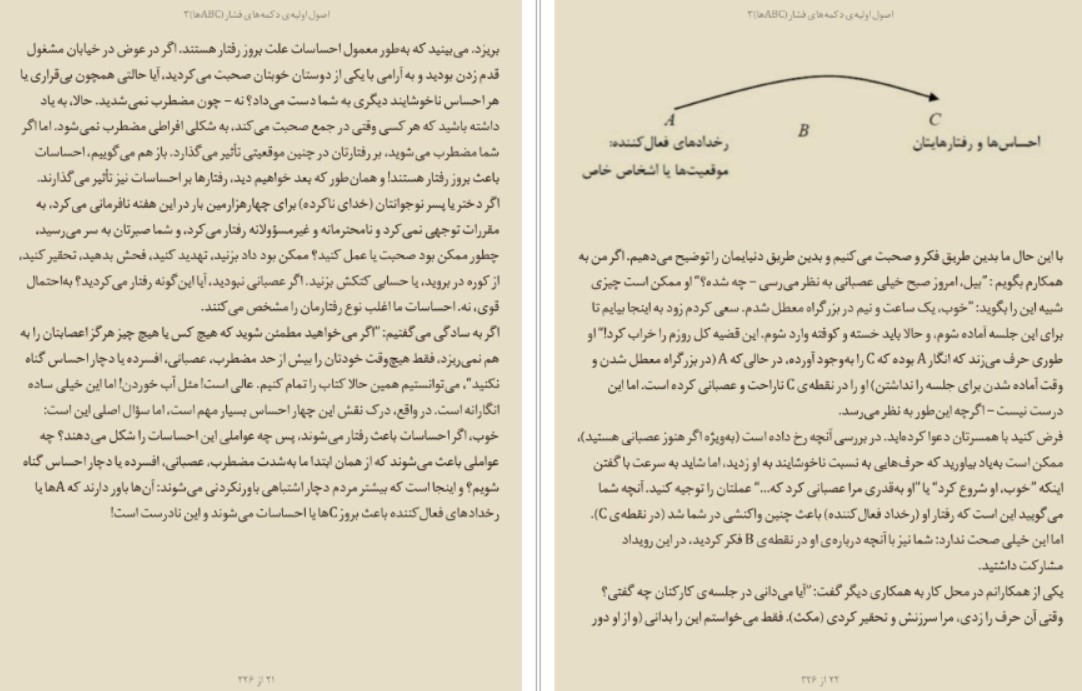 اصول اولیه‌ی دکمه‌های فشار (ABCها)۳
بریزد. می‌بینید که به‌طور معمول احساسات علت بروز رفتار هستند. اگر در عوض در خیابان مشغول
قدم زدن بودید و به آرامی با یکی از دوستان خوبتان صحبت می‌کردید، آیا حالتی همچون بی‌قراری یا
هر احساس ناخوشایند دیگری به شما دست می‌داد؟ نه – چون مضطرب نمی‌شدید. حالا، به یاد
داشته باشید که هر کسی وقتی در جمع صحبت می‌کند، به شکلی افراطی مضطرب نمی‌شود. اما اگر
شما مضطرب می‌شوید، بر رفتارتان در چنین موقعیتی تأثیر می‌گذارد. باز هم می‌گوییم، احساسات
باعث بروز رفتار هستند! و همان‌طور که بعد خواهیم دید، رفتارها بر احساسات نیز تأثیر می‌گذارند.
اگر دختر یا پسر نوجوانتان (خدای ناکرده) برای چهارهزارمین بار در این هفته نافرمانی می‌کرد، به
مقررات توجهی نمی‌کرد و نامحترمانه و غیرمسؤولانه رفتار می‌کرد، و شما صبرتان به سر می‌رسید،
چطور ممکن بود صحبت یا عمل کنید؟ ممکن بود داد بزنید، تهدید کنید، فحش بدهید، تحقیر کنید،
از کوره در بروید، یا حسابی کتکش بزنید. اگر عصبانی نبودید، آیا این گونه رفتار می‌کردید؟ به‌احتمال
قوی، نه. احساسات ما اغلب نوع رفتارمان را مشخص می‌کنند.
اگر به سادگی می‌گفتیم: "اگر می‌خواهید مطمئن شوید که هیچ کس یا هیچ چیز هرگز اعصابتان را به
هم نمی‌ریزد، فقط هیچ‌وقت خودتان را بیش از حد مضطرب، عصبانی، افسرده یا دچار احساس گناه
نکنید"، می‌توانستیم همین حالا کتاب را تمام کنیم. عالی است! مثل آب خوردن! اما این خیلی ساده
انگارانه است. در واقع، درک نقش این چهار احساس بسیار مهم است، اما سؤال اصلی این است:
خوب، اگر احساسات باعث رفتار می‌شوند، پس چه عواملی این احساسات را شکل می‌دهند؟ چه
عواملی باعث می‌شوند که از همان ابتدا ما به‌شدت مضطرب، عصبانی، افسرده یا دچار احساس گناه
شویم؟ و اینجا است که بیشتر مردم دچار اشتباهی باورنکردنی می‌شوند: آن‌ها باور دارند که Aها یا
رخدادهای فعال‌کننده باعث بروز Cها یا احساسات می‌شوند و این نادرست است!
۲۱ از ۳۲۶
اصول اولیه‌ی دکمه‌های فشار (ABCها)۳
A
B
C
رخدادهای فعال‌کننده:
موقعیت‌ها یا اشخاص خاص
احساس‌ها و رفتارهایتان
با این حال ما بدین طریق فکر و صحبت می‌کنیم و بدین طریق دنیایمان را توضیح می‌دهیم. اگر من به
همکارم بگویم : "بیل، امروز صبح خیلی عصبانی به نظر می‌رسی – چه شده؟" او ممکن است چیزی
شبیه این را بگوید: "خوب، یک ساعت و نیم در بزرگراه معطل شدم. سعی کردم زود به اینجا بیایم تا
برای این جلسه آماده شوم، و حالا باید خسته و کوفته وارد شوم. این قضیه کل روزم را خراب کرد!" او
طوری حرف می‌زند که انگار A بوده که C را به‌وجود آورده، در حالی که A (در بزرگراه معطل شدن و
وقت آماده شدن برای جلسه را نداشتن) او را در نقطه‌ی C ناراحت و عصبانی کرده است. اما این
درست نیست – اگرچه این‌طور به نظر می‌رسد.
فرض کنید با همسرتان دعوا کرده‌اید. در بررسی آنچه رخ داده است (به‌ویژه اگر هنوز عصبانی هستید)،
ممکن است به‌یاد بیاورید که حرف‌هایی به نسبت ناخوشایند به او زدید، اما شاید به سرعت با گفتن
اینکه "خوب، او شروع کرد" یا "او به‌قدری مرا عصبانی کرد که..." عملتان را توجیه کنید. آنچه شما
می‌گویید این است که رفتار او (رخداد فعال‌کننده) باعث چنین واکنشی در شما شد (در نقطه‌ی C).
اما این خیلی صحت ندارد: شما نیز با آنچه درباره‌ی او در نقطه‌ی B فکر کردید، در این رویداد
مشارکت داشتید.
یکی از همکارانم در محل کار به همکاری دیگر گفت: "آیا می‌دانی در جلسه‌ی کارکنان چه گفتی؟
وقتی آن حرف را زدی، مرا سرزنش و تحقیر کردی (مکث). فقط می‌خواستم این را بدانی (و از او دور
۲۲ از ۳۲۶